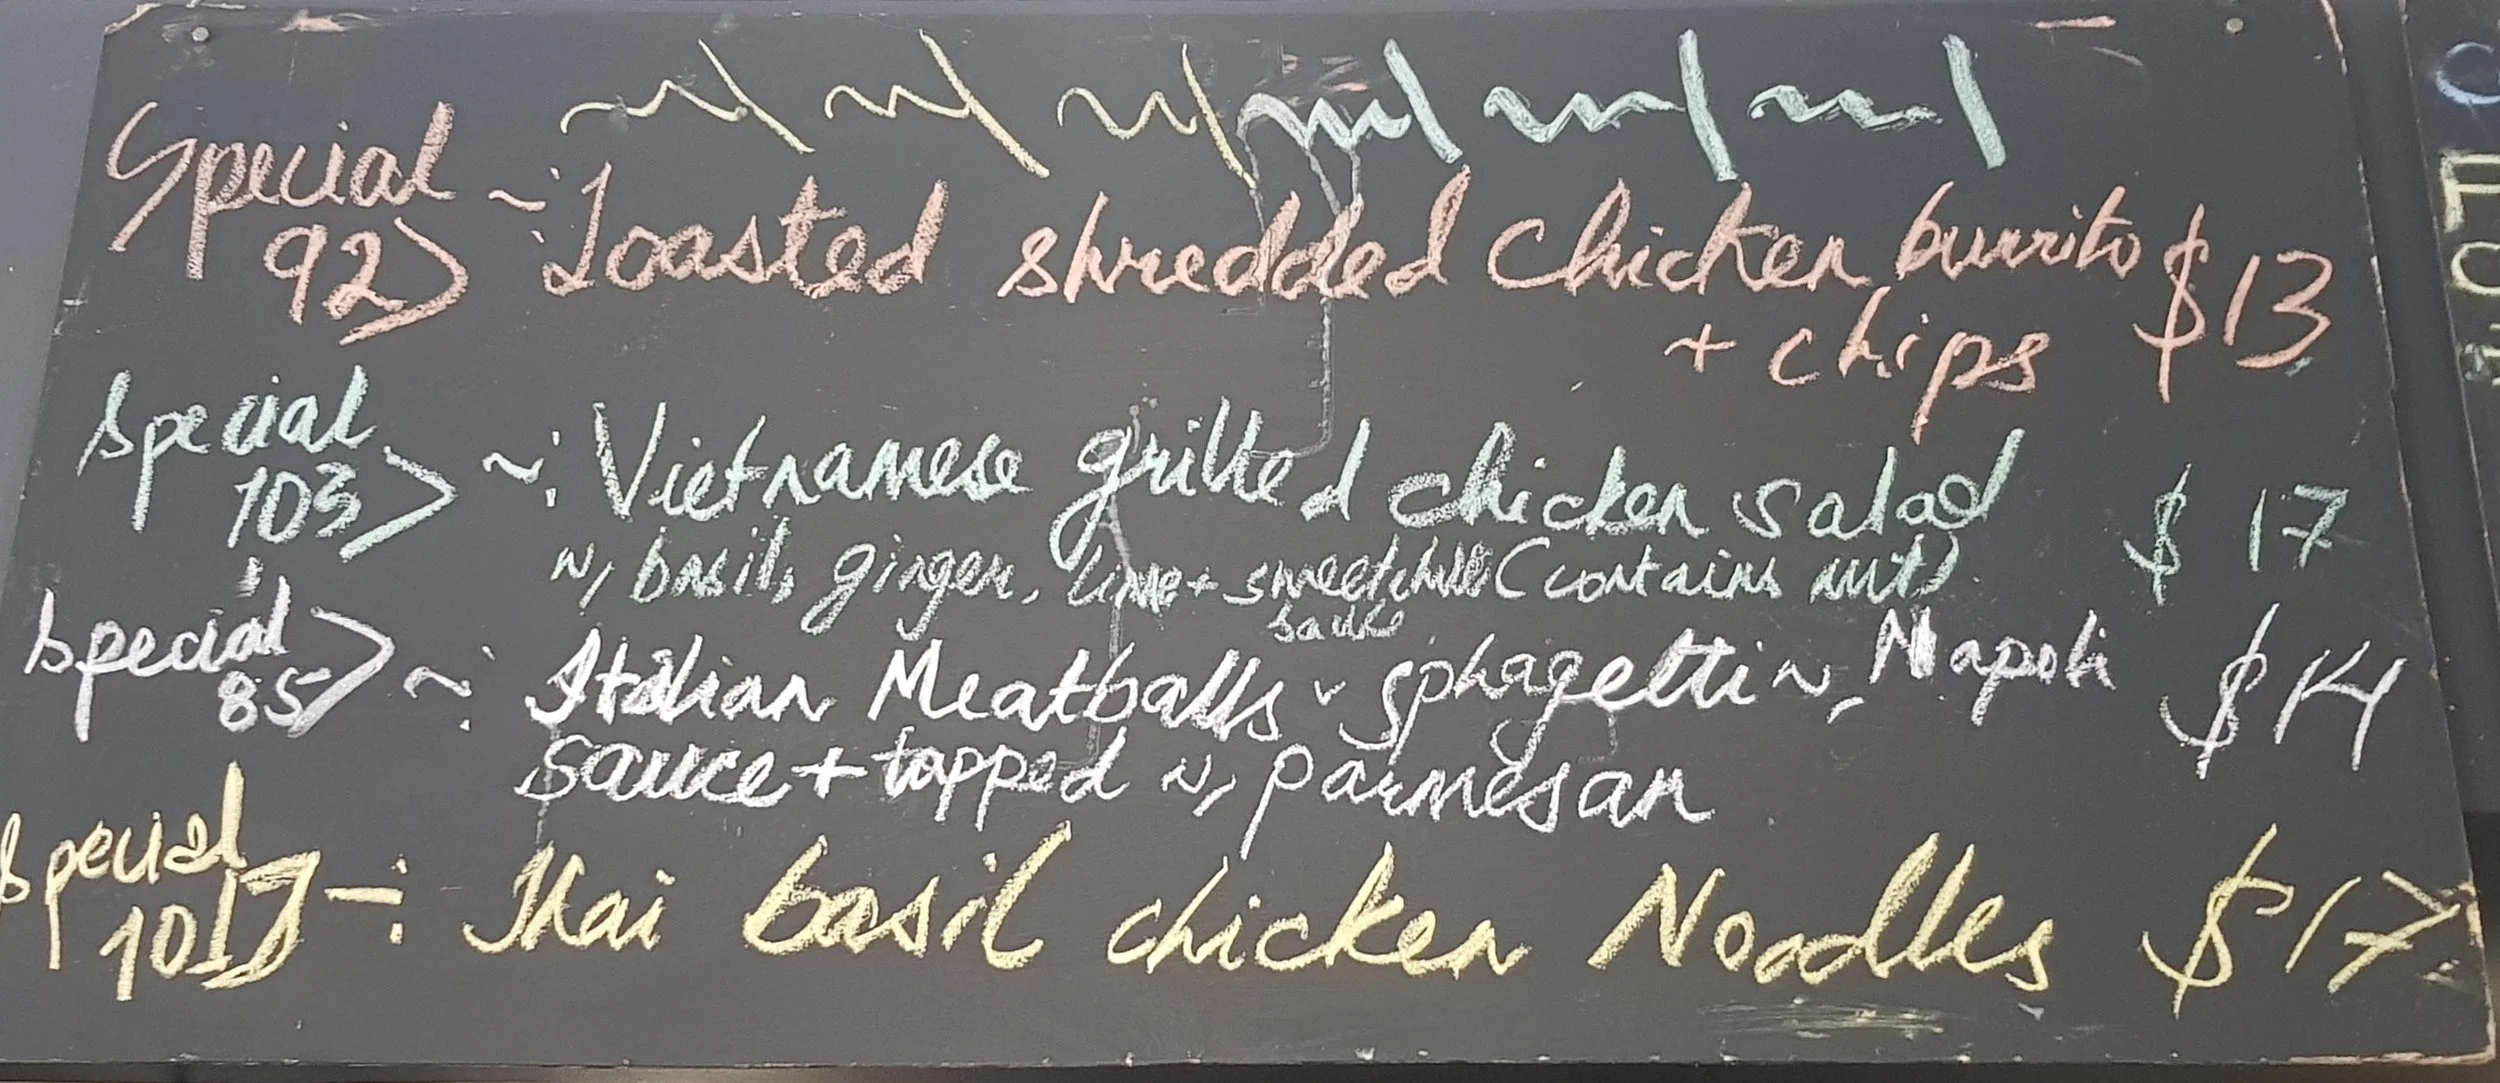 Special ~: Toasted shredded chicken burrito $13
92>
+ chips
Special ~: Vietnamese grilled chicken salad $17
103>
w, basil, ginger, lime + sweetchilli (contains nuts)
sauce
Special ~: Italian Meatballs sphagetti w, Napoli $14
85>
sauce + topped w, parmesan
Special -: Thai basil chicken Noodles $17